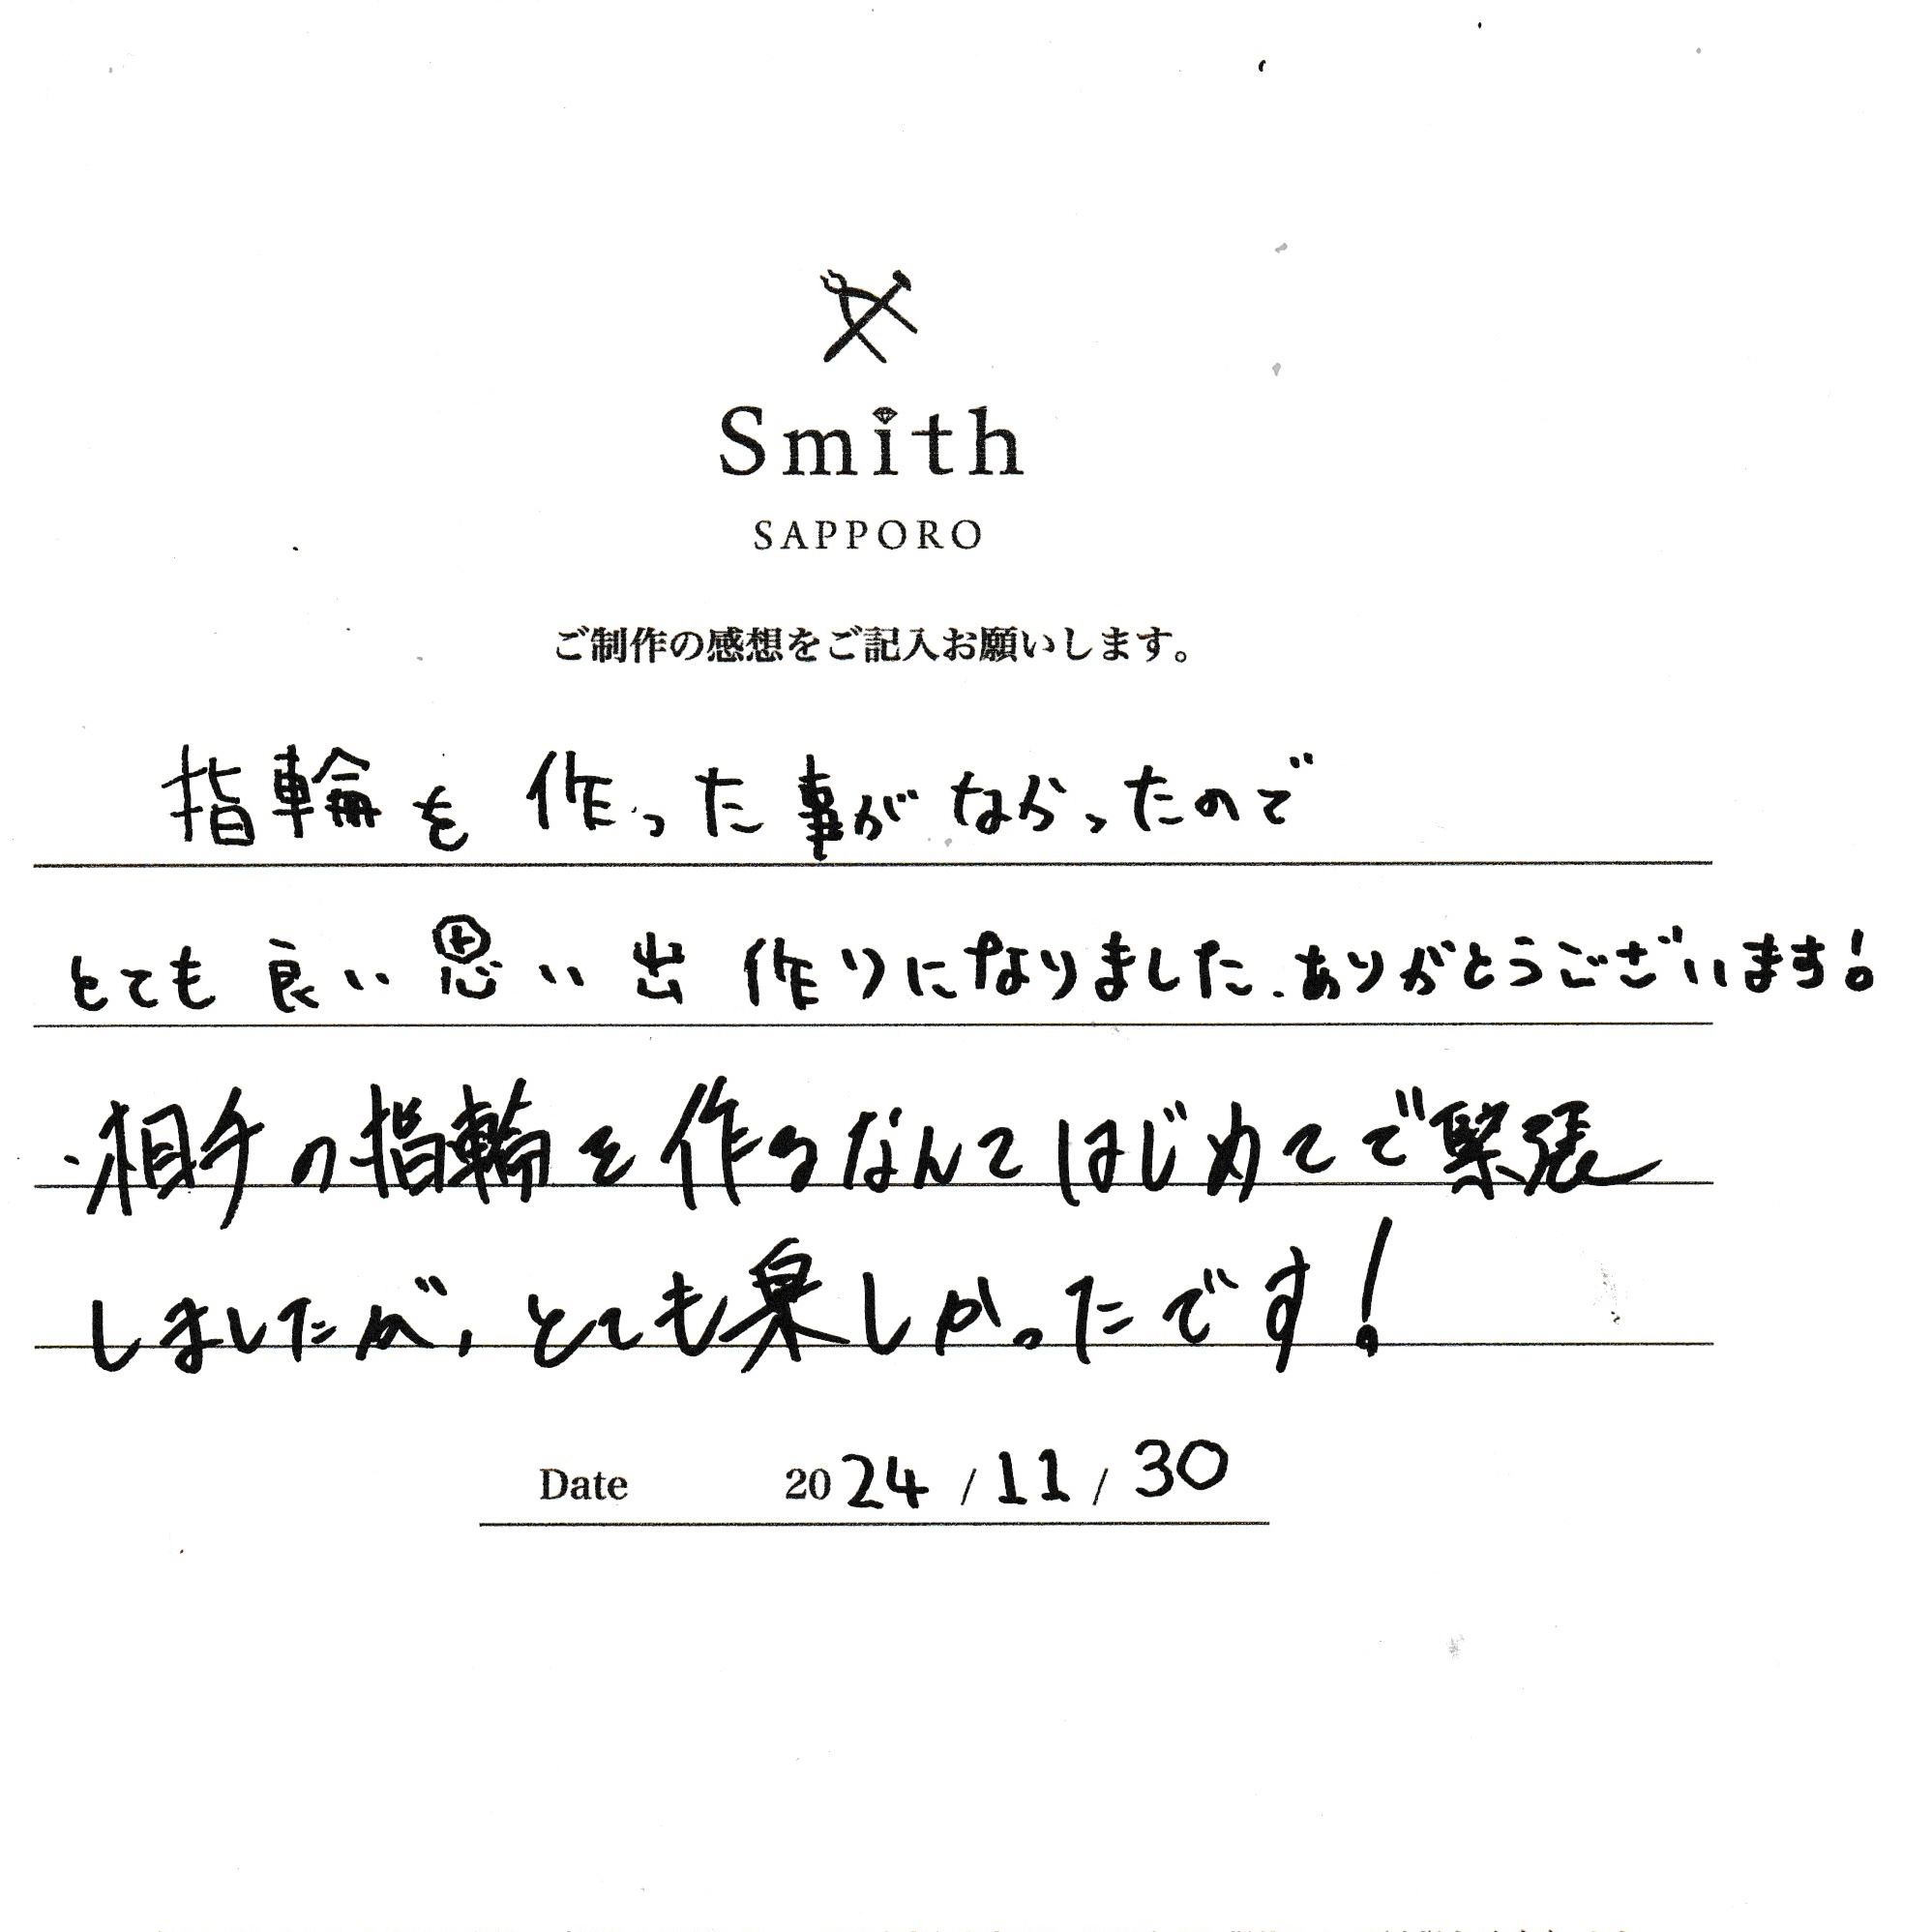 Smith
SAPPORO
ご制作の感想をご記入お願いします。
指輪を作った事がなかったので
とても良い思い出作りになりました.ありがとうございます!
・相手の指輪を作るなんてはじめてで緊張
しましたが,とても楽しかったです!
Date 2024/11/30